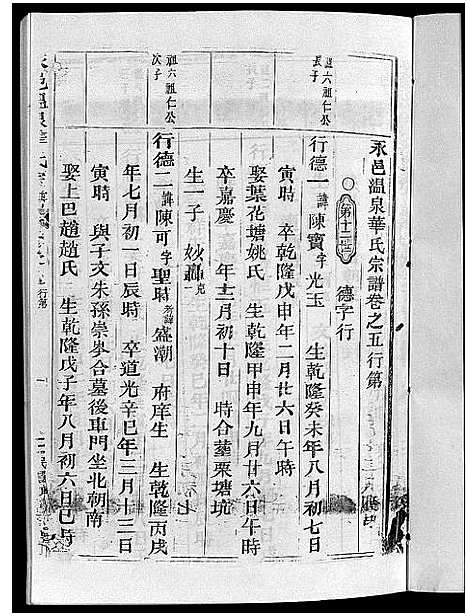 永邑溫泉華氏宗譜卷之五行第
第十二世 德字行
祖六祖仁公
長子
行德一 諱陳寶字光玉 生乾隆癸未年八月初七日
寅時 卒乾隆戊申年二月廿六日午時
娶葉花塘姚氏 生乾隆甲申年九月廿六日午時
卒嘉慶 年十二月初十日 時合葬栗塘坑
生一子 妙
祖六祖仁公
次子
行德二 諱陳可字聖時 盛潮 府庠生 生乾隆丙戌
年七月初一日辰時 卒道光辛巳年三月十三日
寅時 與子文朱孫崇岑合墓後車門坐北朝南
娶上巴趙趙氏 生乾隆戊子年八月初六日巳時